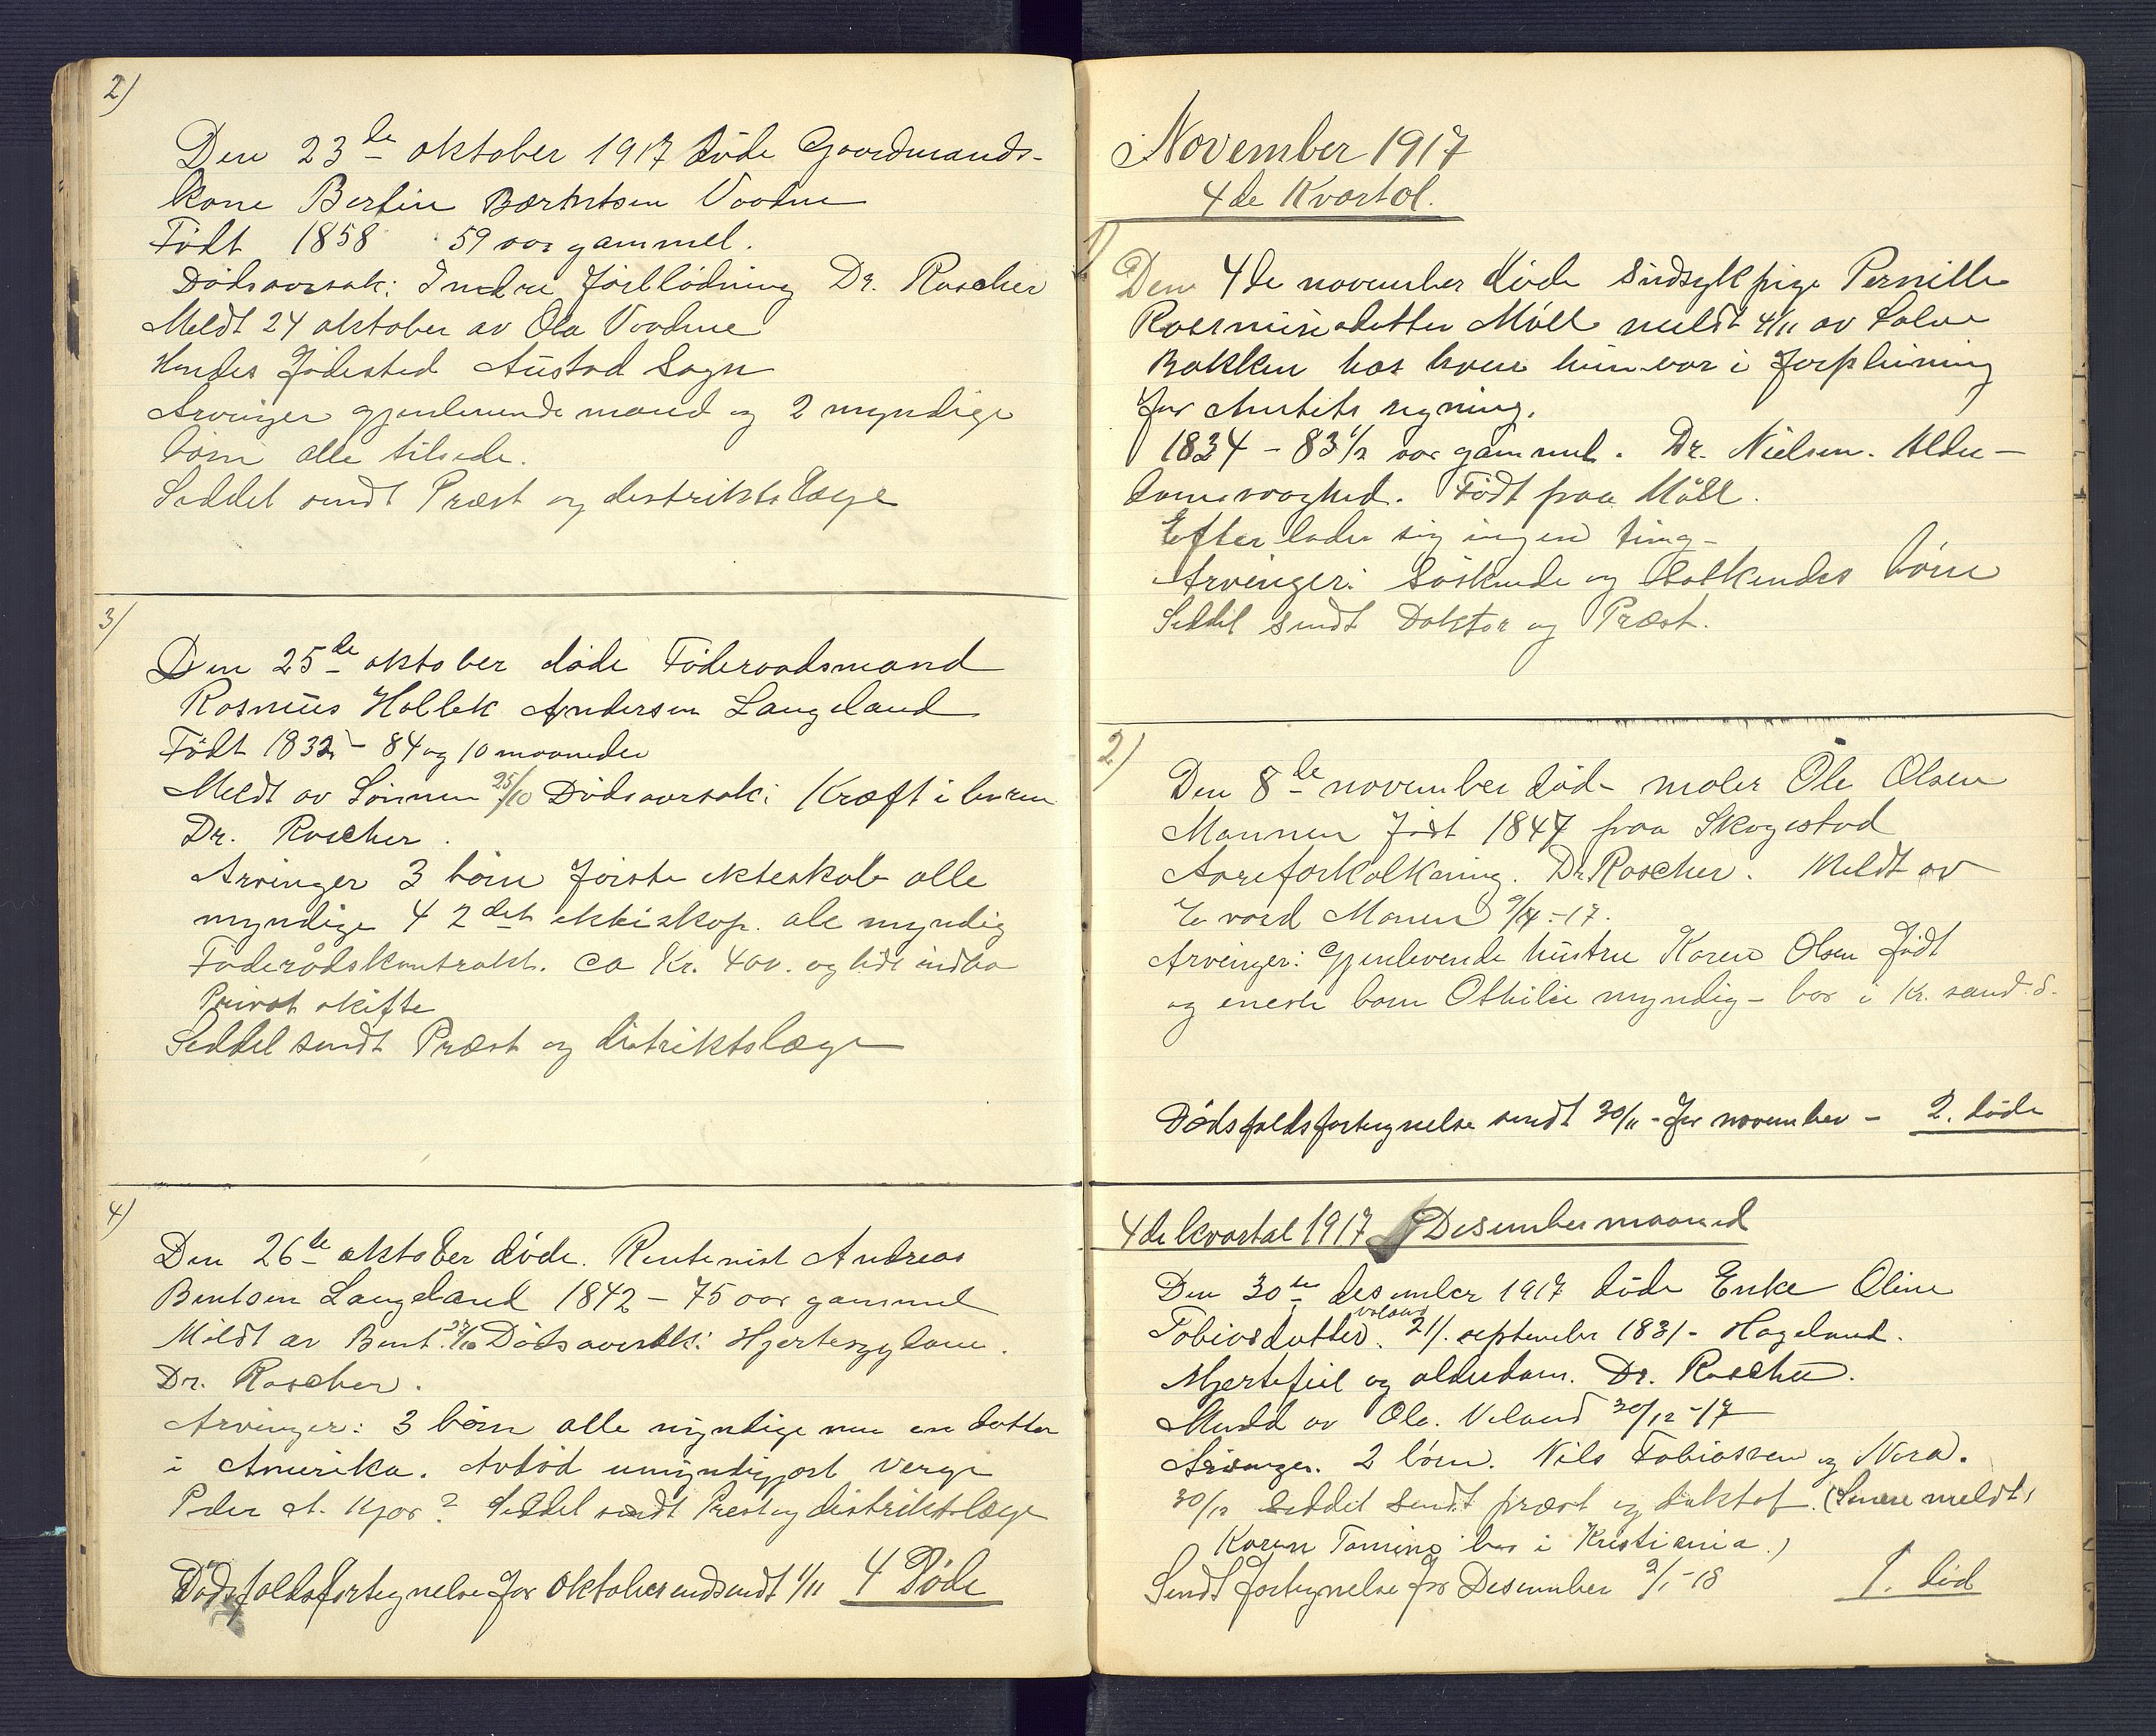 2)
Den 23de oktober 1917 døde Gaardmands-
kone Bertine Børntsen Vaadne
Født 1858 59 aar gammel.
Dødsaarsak: Indre forblødning Dr. Roscher
Meldt 24 oktober av Ola Vaadne
Hendes fødested Austad Sogn
Arvinger gjenlevende mand og 2 myndige
børn alle tilstede.
Seddel sendt Præst og distriktslæge
3)
Den 25de oktober døde Føderaadsmand
Rasmus Andersen Langeland
Født 1832 - 84 og 10 maaneder
Meldt av Sønnen 25/10 Dødsaarsak: Kræft i
Dr. Roscher.
Arvinger 3 børn første ekteskab alle
myndige 4 2det ekteskap. ale myndig
Føderådskontrakt. ca Kr. 400. og lidt indbo
Privat skifte
Seddel sendt Præst og distriktslæge
4)
Den 26de oktober døde. Rentenist Andreas
Bentsen Langeland 1842 - 75 aar gammel
Meldt av Bent. Dødsaarsak: Hjertesygdom.
Dr. Roscher.
Arvinger: 3 børn alle myndige en datter
i Amerika. Avdød umyndigjort verge
Peder A. Kjør? Seddel sendt Prest og distriktslæge
Dødsfaldsfortegnelse for oktober indsendt 1/11 4 Døde
November 1917
4de Kvartal.
1)
Den 4de november døde Sindsyk pige Pernille
Rasmusdatter Møll meldt 4/11 av Salve
Bakken hos hvem hun var i forpleining
for Amtets regning.
1834 - 83 1/2 aar gammel. Dr. Nielsen. Alder-
domssvaghed. Født paa Møll.
Efterlader sig ingen ting -
Arvinger: Søskende og Søskendes børn
Seddel sendt Doktor og Præst.
2)
Den 8de november død maler Ole Olsen
Mannen født 1847 paa Skogestad
Aareforkalkning. Dr Roscher. Meldt av
Manen
Arvinger: Gjenlevende hustru Karen Olsen født
og eneste barn Othilie myndig - bor i Kr. sand. S.
Dødsfaldsfortegnelse sendt 30/11 - for november - 2. døde
4de kvartal 1917 Desember maaned
Den 30te desember 1917 døde Enke Oline
Tobiasdatter. 21/. september 1831 - Hageland.
Hjertefeil og alderdom. Dr. Roscher.
Meldt av Ola. Veland 30/12 -17
Arvinger. 2 børn. Nils Tobiassen og Nora.
30/12 Seddel sendt præst og doktor. (Senere meldt,
Karen Tomine bor i Kristiania.)
Sendt fortegnelse for Desember 2/1 -18 1. død